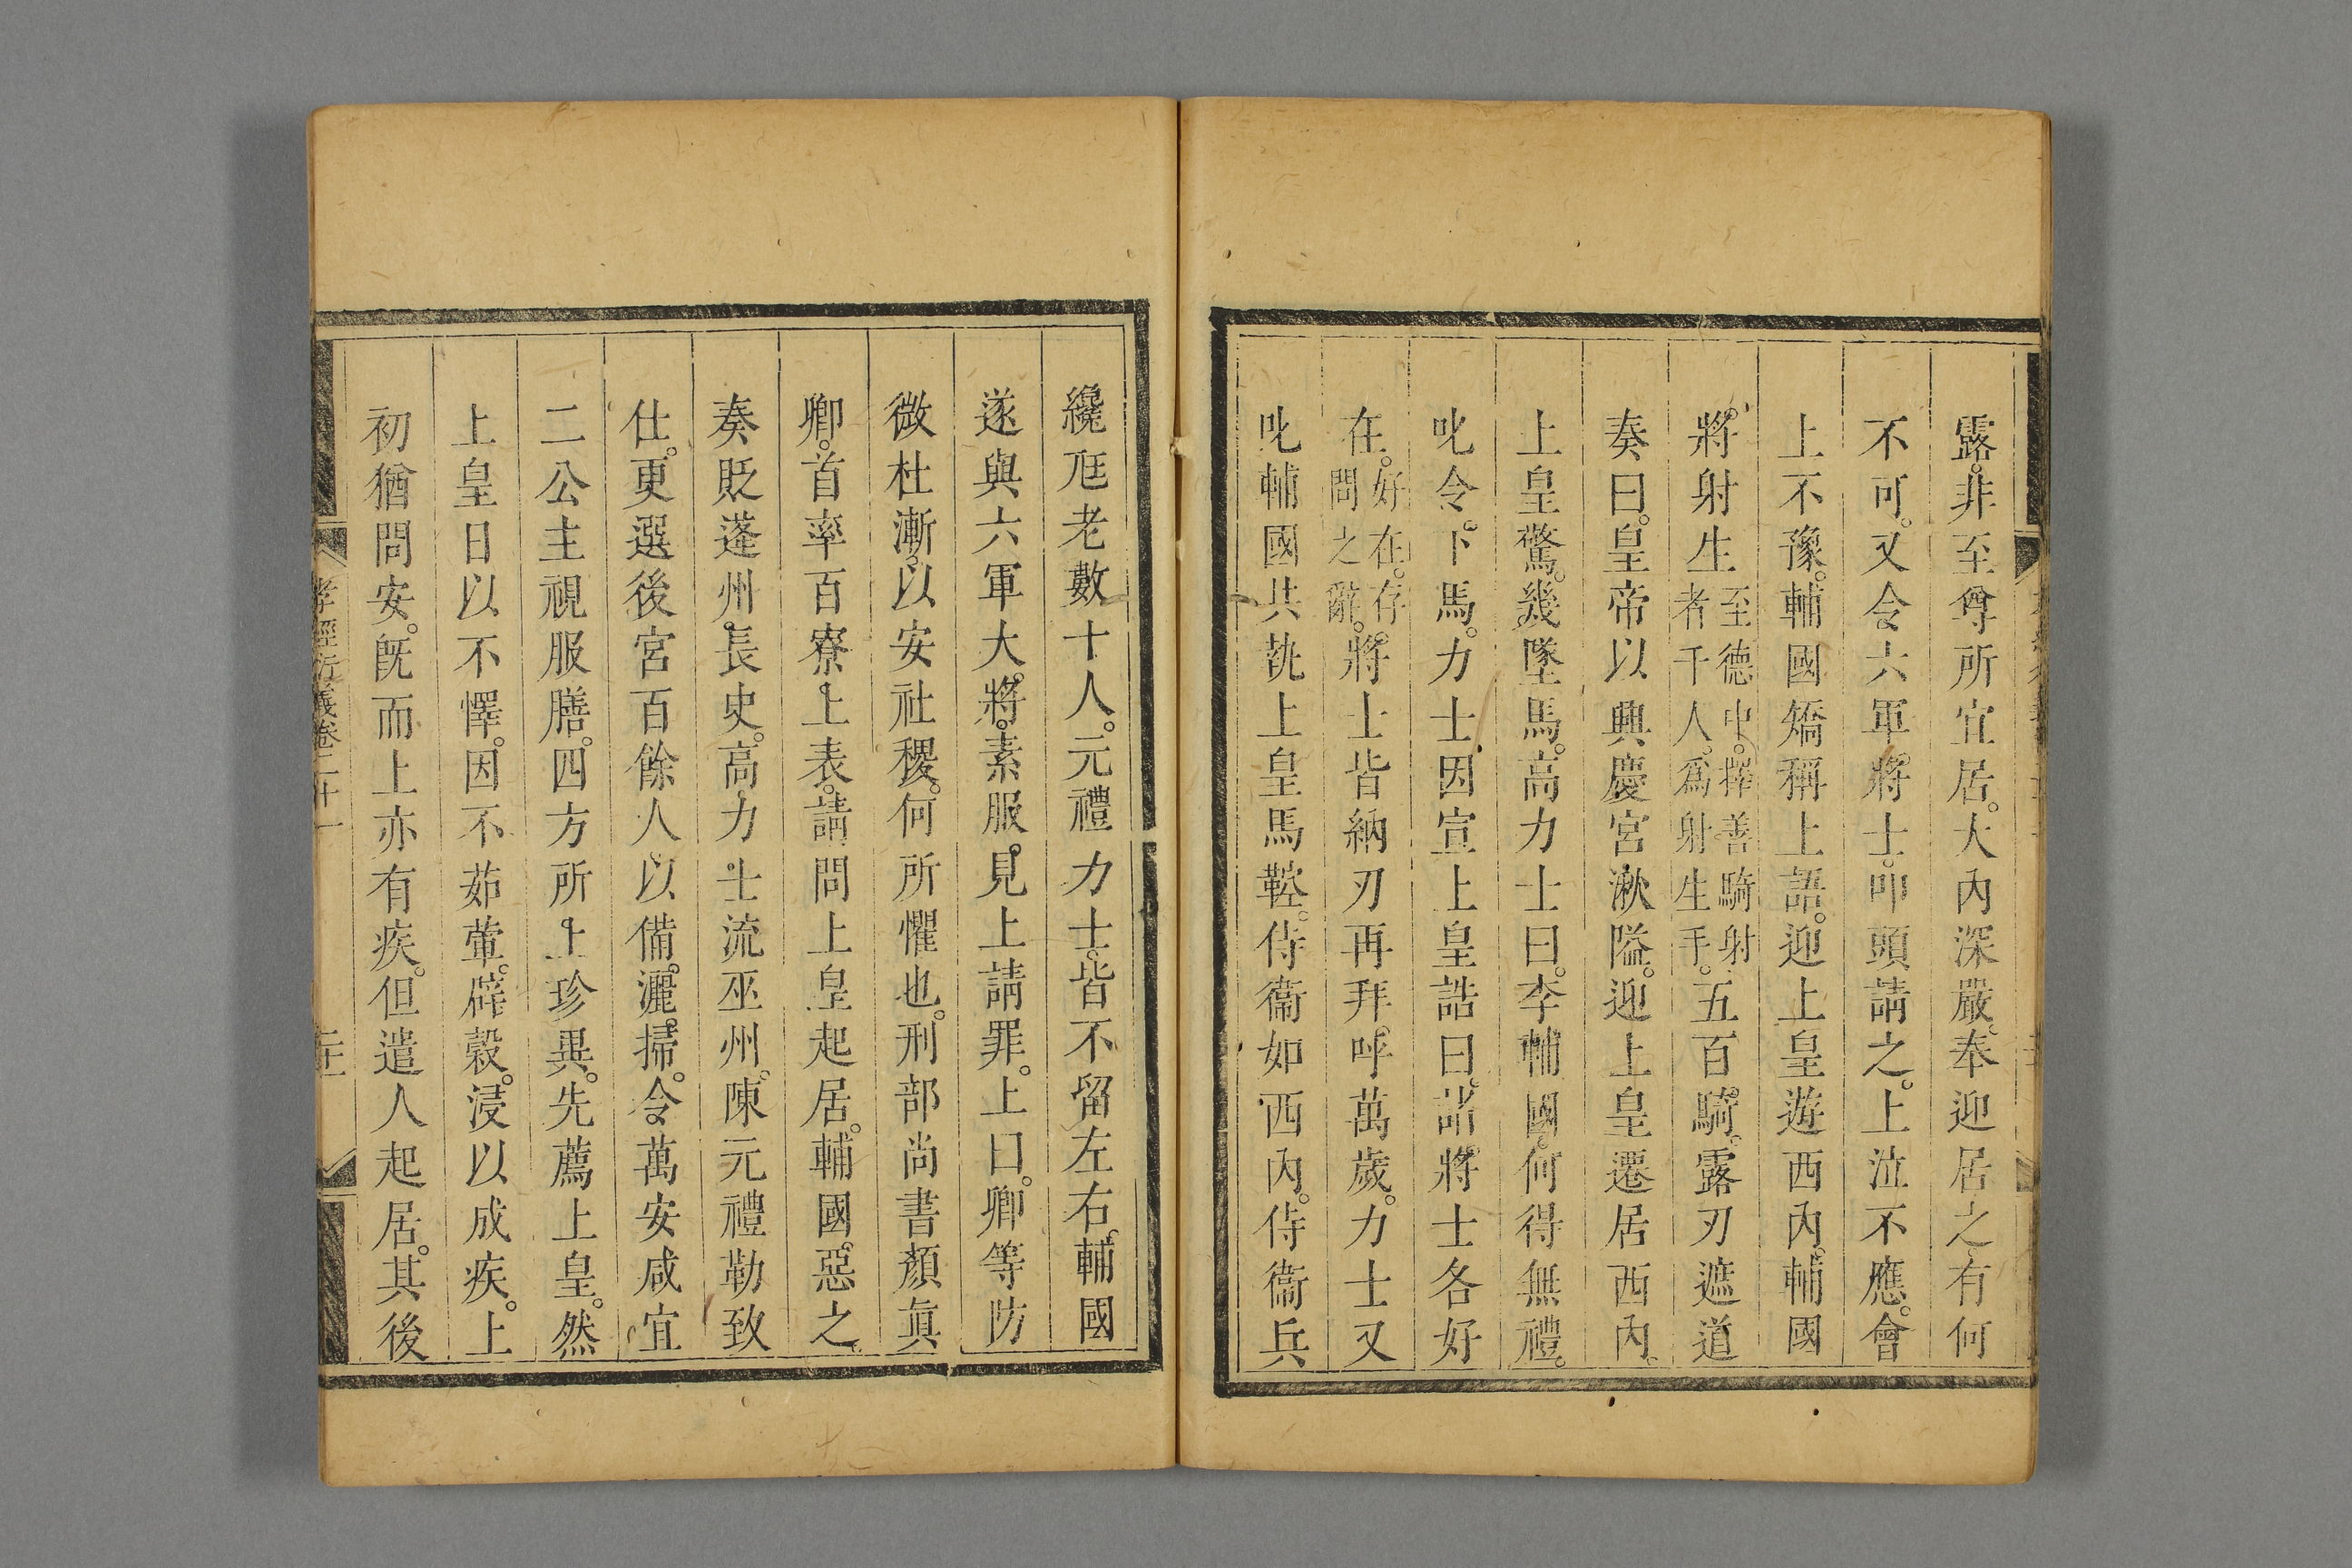 露。非至尊所宜居。大內深嚴。奉迎居之。有何
不可。又令六軍將士。叩頭請之。上泣不應。會
上不豫。輔國矯稱上語。迎上皇遊西內。輔國
將射生至德中。擇善騎射者千人。爲射生手。五百騎。露刃遮道
奏曰。皇帝以興慶宮湫隘。迎上皇遷居西內。
上皇驚。幾墜馬。高力士曰。李輔國。何得無禮。
叱令。下馬。力士因宣上皇誥曰。諸將士各好
在。好在。存問之辭。將士皆納刃再拜。呼萬歲。力士又
叱輔國共執上皇馬鞚。侍衞如西內。侍衞兵
纔尫老數十人。元禮力士。皆不留左右。輔國
遂與六軍大將。素服。見上請罪。上曰。卿等防
微杜漸。以安社稷。何所懼也。刑部尚書顏眞
卿。首率百寮。上表。請問上皇起居。輔國。惡之。
奏貶蓬州。長史。高力士流巫州。陳元禮勒致
仕。更選後宮百餘人。以備灑掃。令萬安咸宜
二公主視服膳。四方所上珍異。先薦上皇。然
上皇日以不懌。因不茹葷。辟穀。浸以成疾。上
初猶問安。旣而上亦有疾。但遣人起居。其後
孝經衍義卷二十一